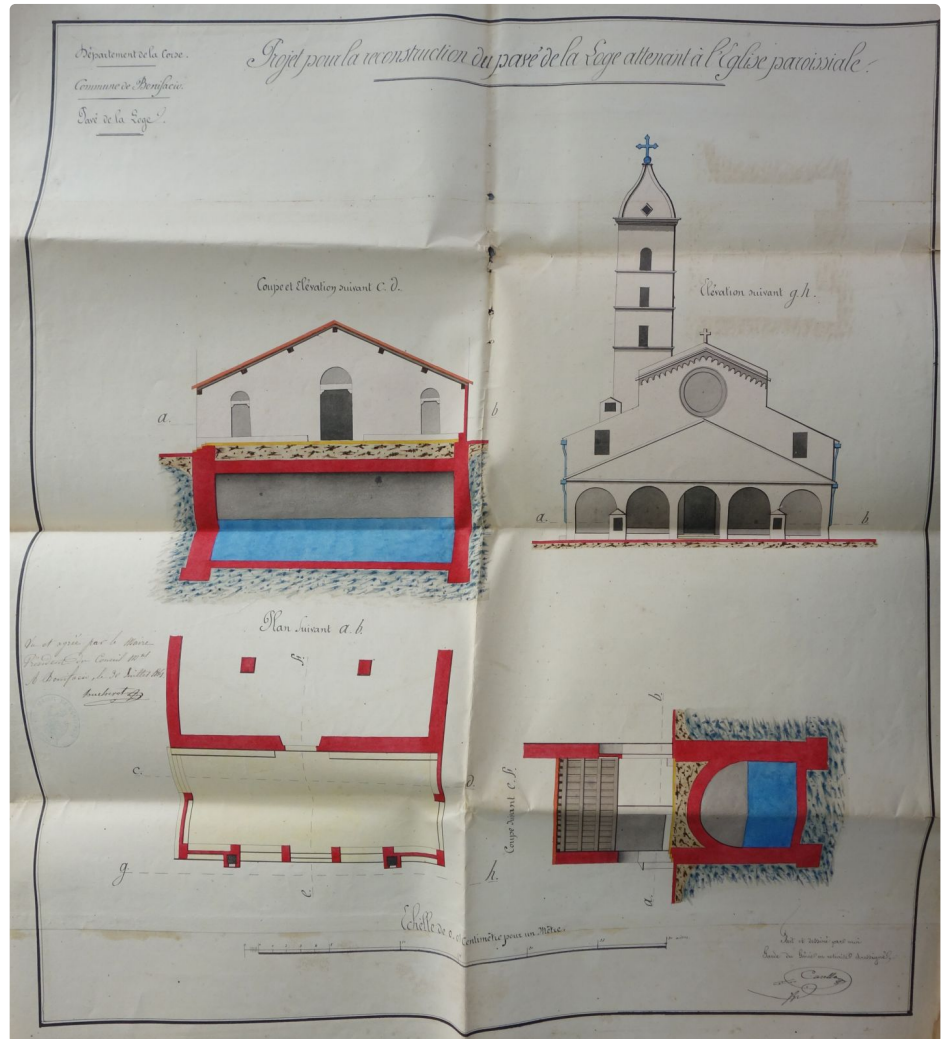 Département de la Corse.
Commune de Bonifacio.
Pavé de la Loge.
Projet pour la reconstruction du pavé de la Loge attenant à l'Eglise paroissiale.
Coupe et Elévation suivant c. d.
a. b
Elévation suivant g. h.
a. b.
Plan suivant a. b.
Vu et par le Maire
Président du Conseil
f.
c. d
g h.
e.
Coupe suivant e. f.
b.
a.
Echelle de 0, Centimètre pour un Mètre.
Fait et dessiné par moi